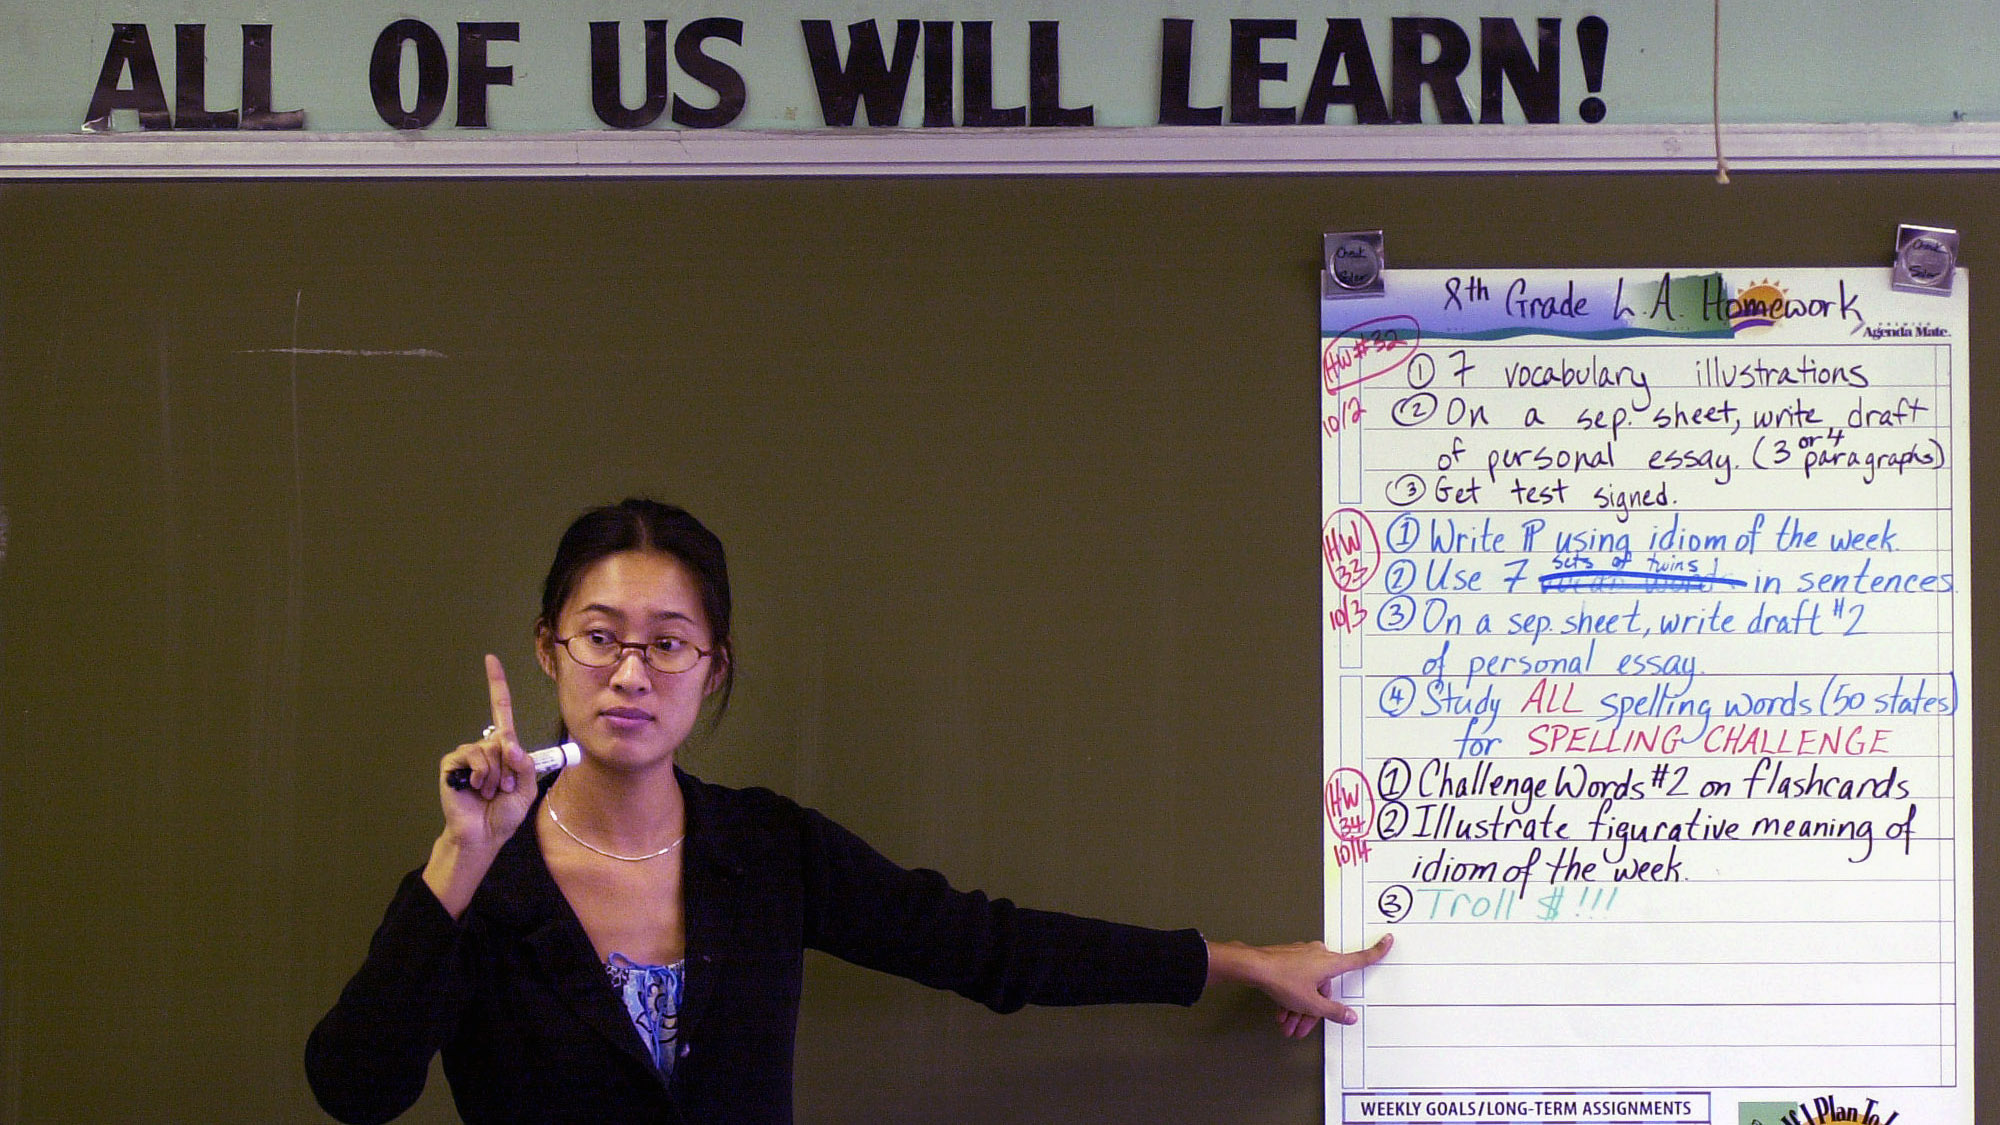 ALL OF US WILL LEARN!
Check
Check
8th Grade L.A. Homework
Agenda Mate.
HW #32
10/2
① 7 vocabulary illustrations
② On a sep. sheet, write draft
of personal essay. (3 or 4 paragraphs)
③ Get test signed.
HW 33
10/3
① Write ¶ using idiom of the week.
② Use 7 sets of twins! in sentences
③ On a sep. sheet, write draft #2
of personal essay.
④ Study ALL spelling words (50 states)
for SPELLING CHALLENGE
HW 34
10/4
① Challenge Words #2 on flashcards
② Illustrate figurative meaning of
idiom of the week.
③ Troll $!!!
WEEKLY GOALS/LONG-TERM ASSIGNMENTS
If I Plan To